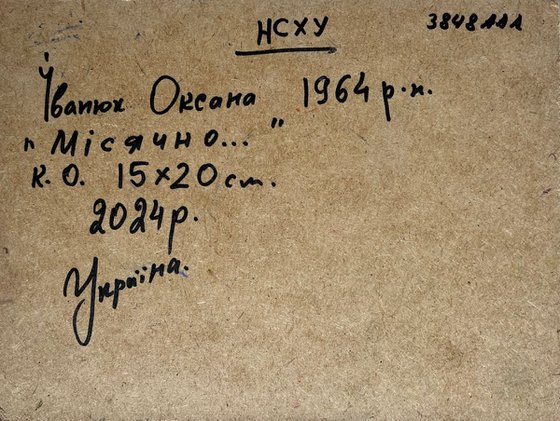 НСХУ
3848 ААА
Іванюк Оксана 1964 р.н.
"Місячно..."
К.О. 15×20 см.
2024 р.
Україна.